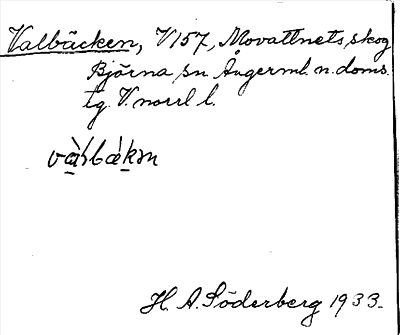 Valbäcken, V157, Movattnets skog
Björna sn. Ångerml. n. doms.
tg. V. norrl l.
và̱lbæ̀ḵən
H. A. Söderberg 1933.